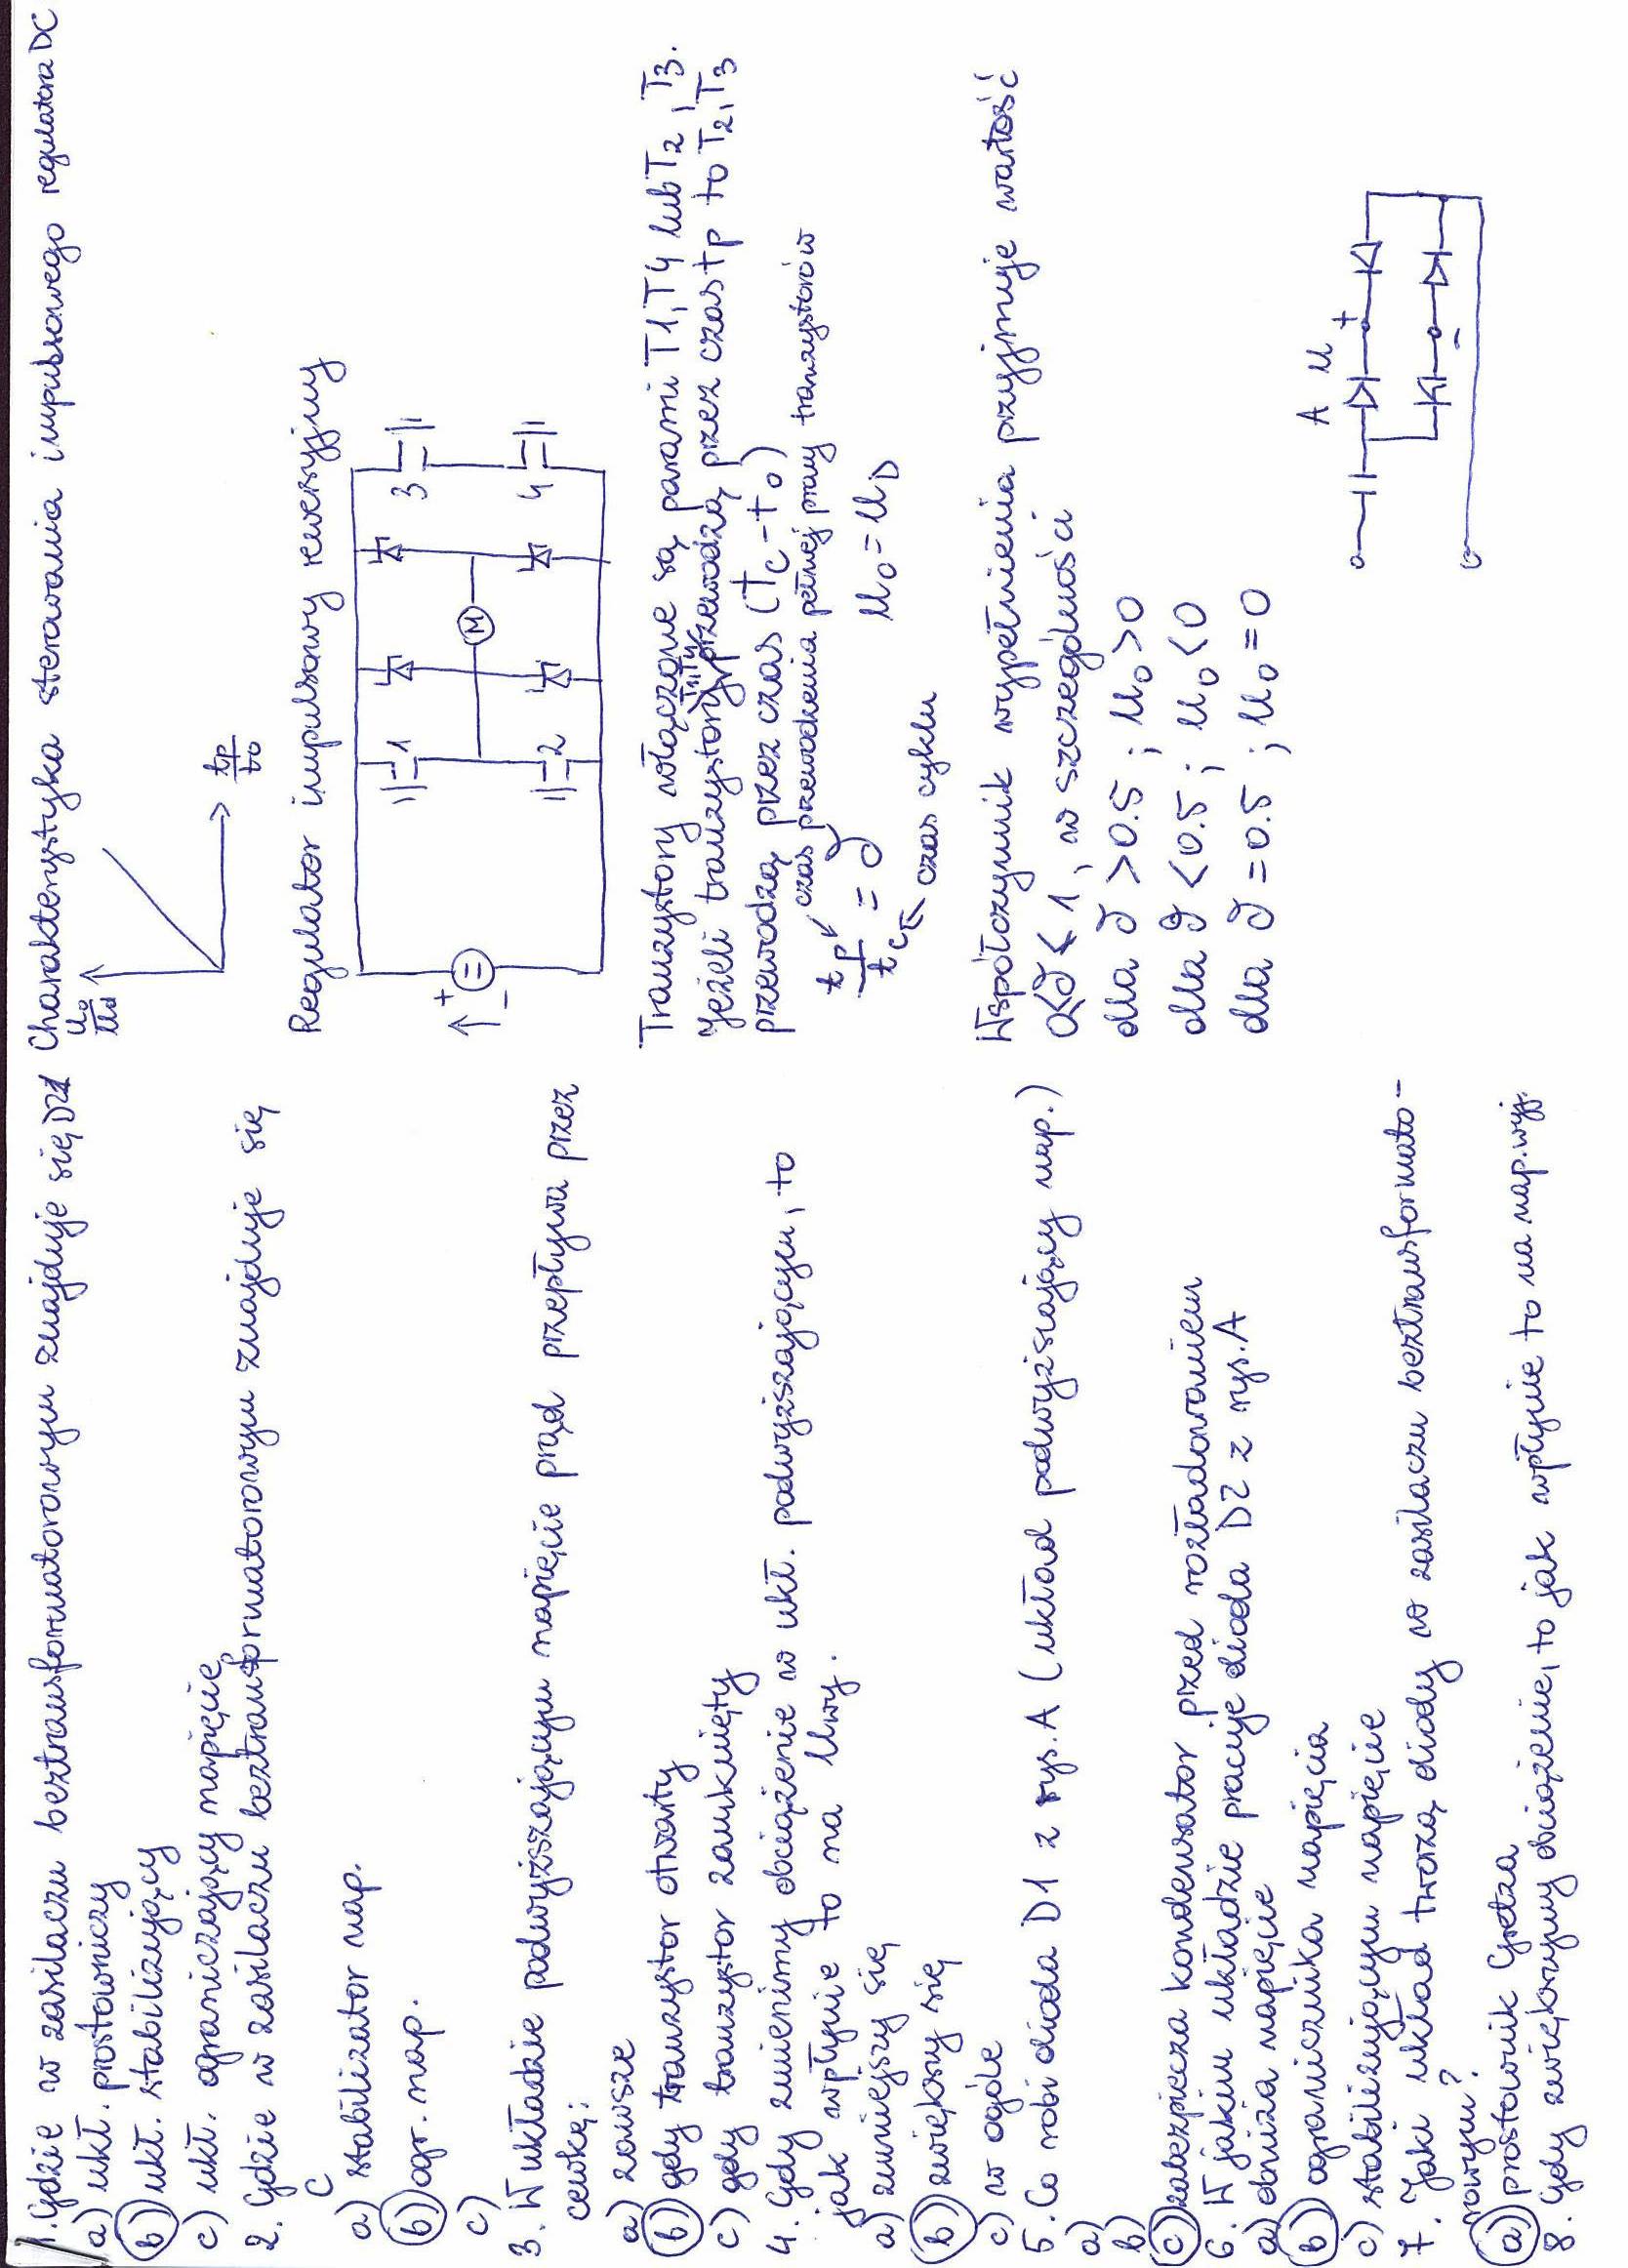 1. Gdzie w zasilaczu beztransformatorowym znajduje się DZ1
a) ukł. prostowniczy
b) ukł. stabilizujący
c) ukł. ograniczający napięcie
2. Gdzie w zasilaczu beztransformatorowym znajduje się
C
a) stabilizator nap.
b) ogr. nap.
c)
3. W układzie podwyższającym napięcie prąd przepływa przez
cewkę:
a) zawsze
b) gdy tranzystor otwarty
c) gdy tranzystor zamknięty
4. Gdy zmienimy obciążenie w ukł. podwyższającym, to
jak wpłynie to na Uwy.
a) zmniejszy się
b) zwiększy się
c) w ogóle
5. Co robi dioda D1 z rys. A (układ podwyższający nap.)
a)
b)
c) zabezpiecza kondensator przed rozładowaniem
6. W jakim układzie pracuje dioda DZ z rys. A
a) obniża napięcie
b) ogranicznika napięcia
c) stabilizującym napięcie
7. Jaki układ tworzą diody w zasilaczu beztransformato-
rowym?
a) prostownik Gretza
8. Gdy zwiększymy obciążenie, to jak wpłynie to na nap. wyj.
Charakterystyka sterowania impulsowego regulatora DC
u0/ud
tp/t0
Regulator impulsowy rewersyjny
+
=
-
1
2
M
3
4
Tranzystory włączone są parami T1, T4 lub T2, T3.
T1, T4
Jeżeli tranzystory przewodzą przez czas tp to T2, T3
przewodzą przez czas (tc - t0)
czas przewodzenia pełnej pracy tranzystorów
tp/tc = δ
U0 = UD
czas cyklu
Współczynnik wypełnienia przyjmuje wartość
0<δ<1, w szczególności
dla δ > 0.5 ; U0 > 0
dla δ < 0.5 ; U0 < 0
dla δ = 0.5 ; U0 = 0
A U
+
-